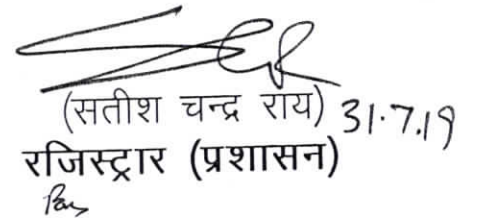 (सतीश चन्द्र राय) 31.7.19
रजिस्ट्रार (प्रशासन)